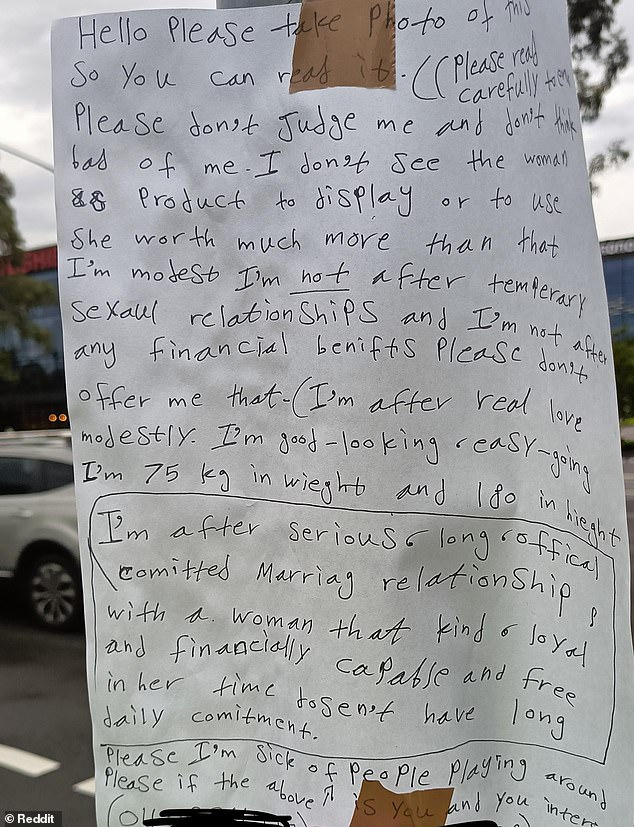 Hello Please take Photo of this
So You can read it. ((Please read
carefully
Please don't Judge me and don't think
bad of me. I don't see the woman
as Product to display or to use
She worth much more than that
I'm modest I'm not after temperary
Sexaul relationShiPS and I'm not after
any financial benifts Please don't
offer me that-(I'm after real love
modestly. I'm good-looking, easy-going
I'm 75 kg in wieght and 180 in hieght
I'm after serious, long, offical
comitted Marriag relationship,
with a woman that kind & loyal
and financially capable and free
in her time dosen't have long
daily comitment.
Please I'm Sick of People Playing around
Please if the above is you and you
Reddit